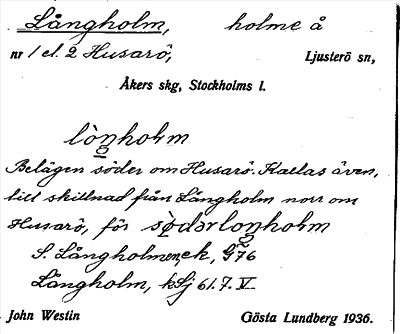 Långholm, holme å
nr 1 el. 2 Husarö, Ljusterö sn,
Åkers skg, Stockholms l.
lòŋhoƚm
Belägen söder om Husarö. Kallas även,
till skillnad från Långholm norr om
Husarö, för sǿdərloŋhoƚm
S. Långholmen, ek, G76
Långholm, kSj 61.7. V.
John Westin Gösta Lundberg 1936.